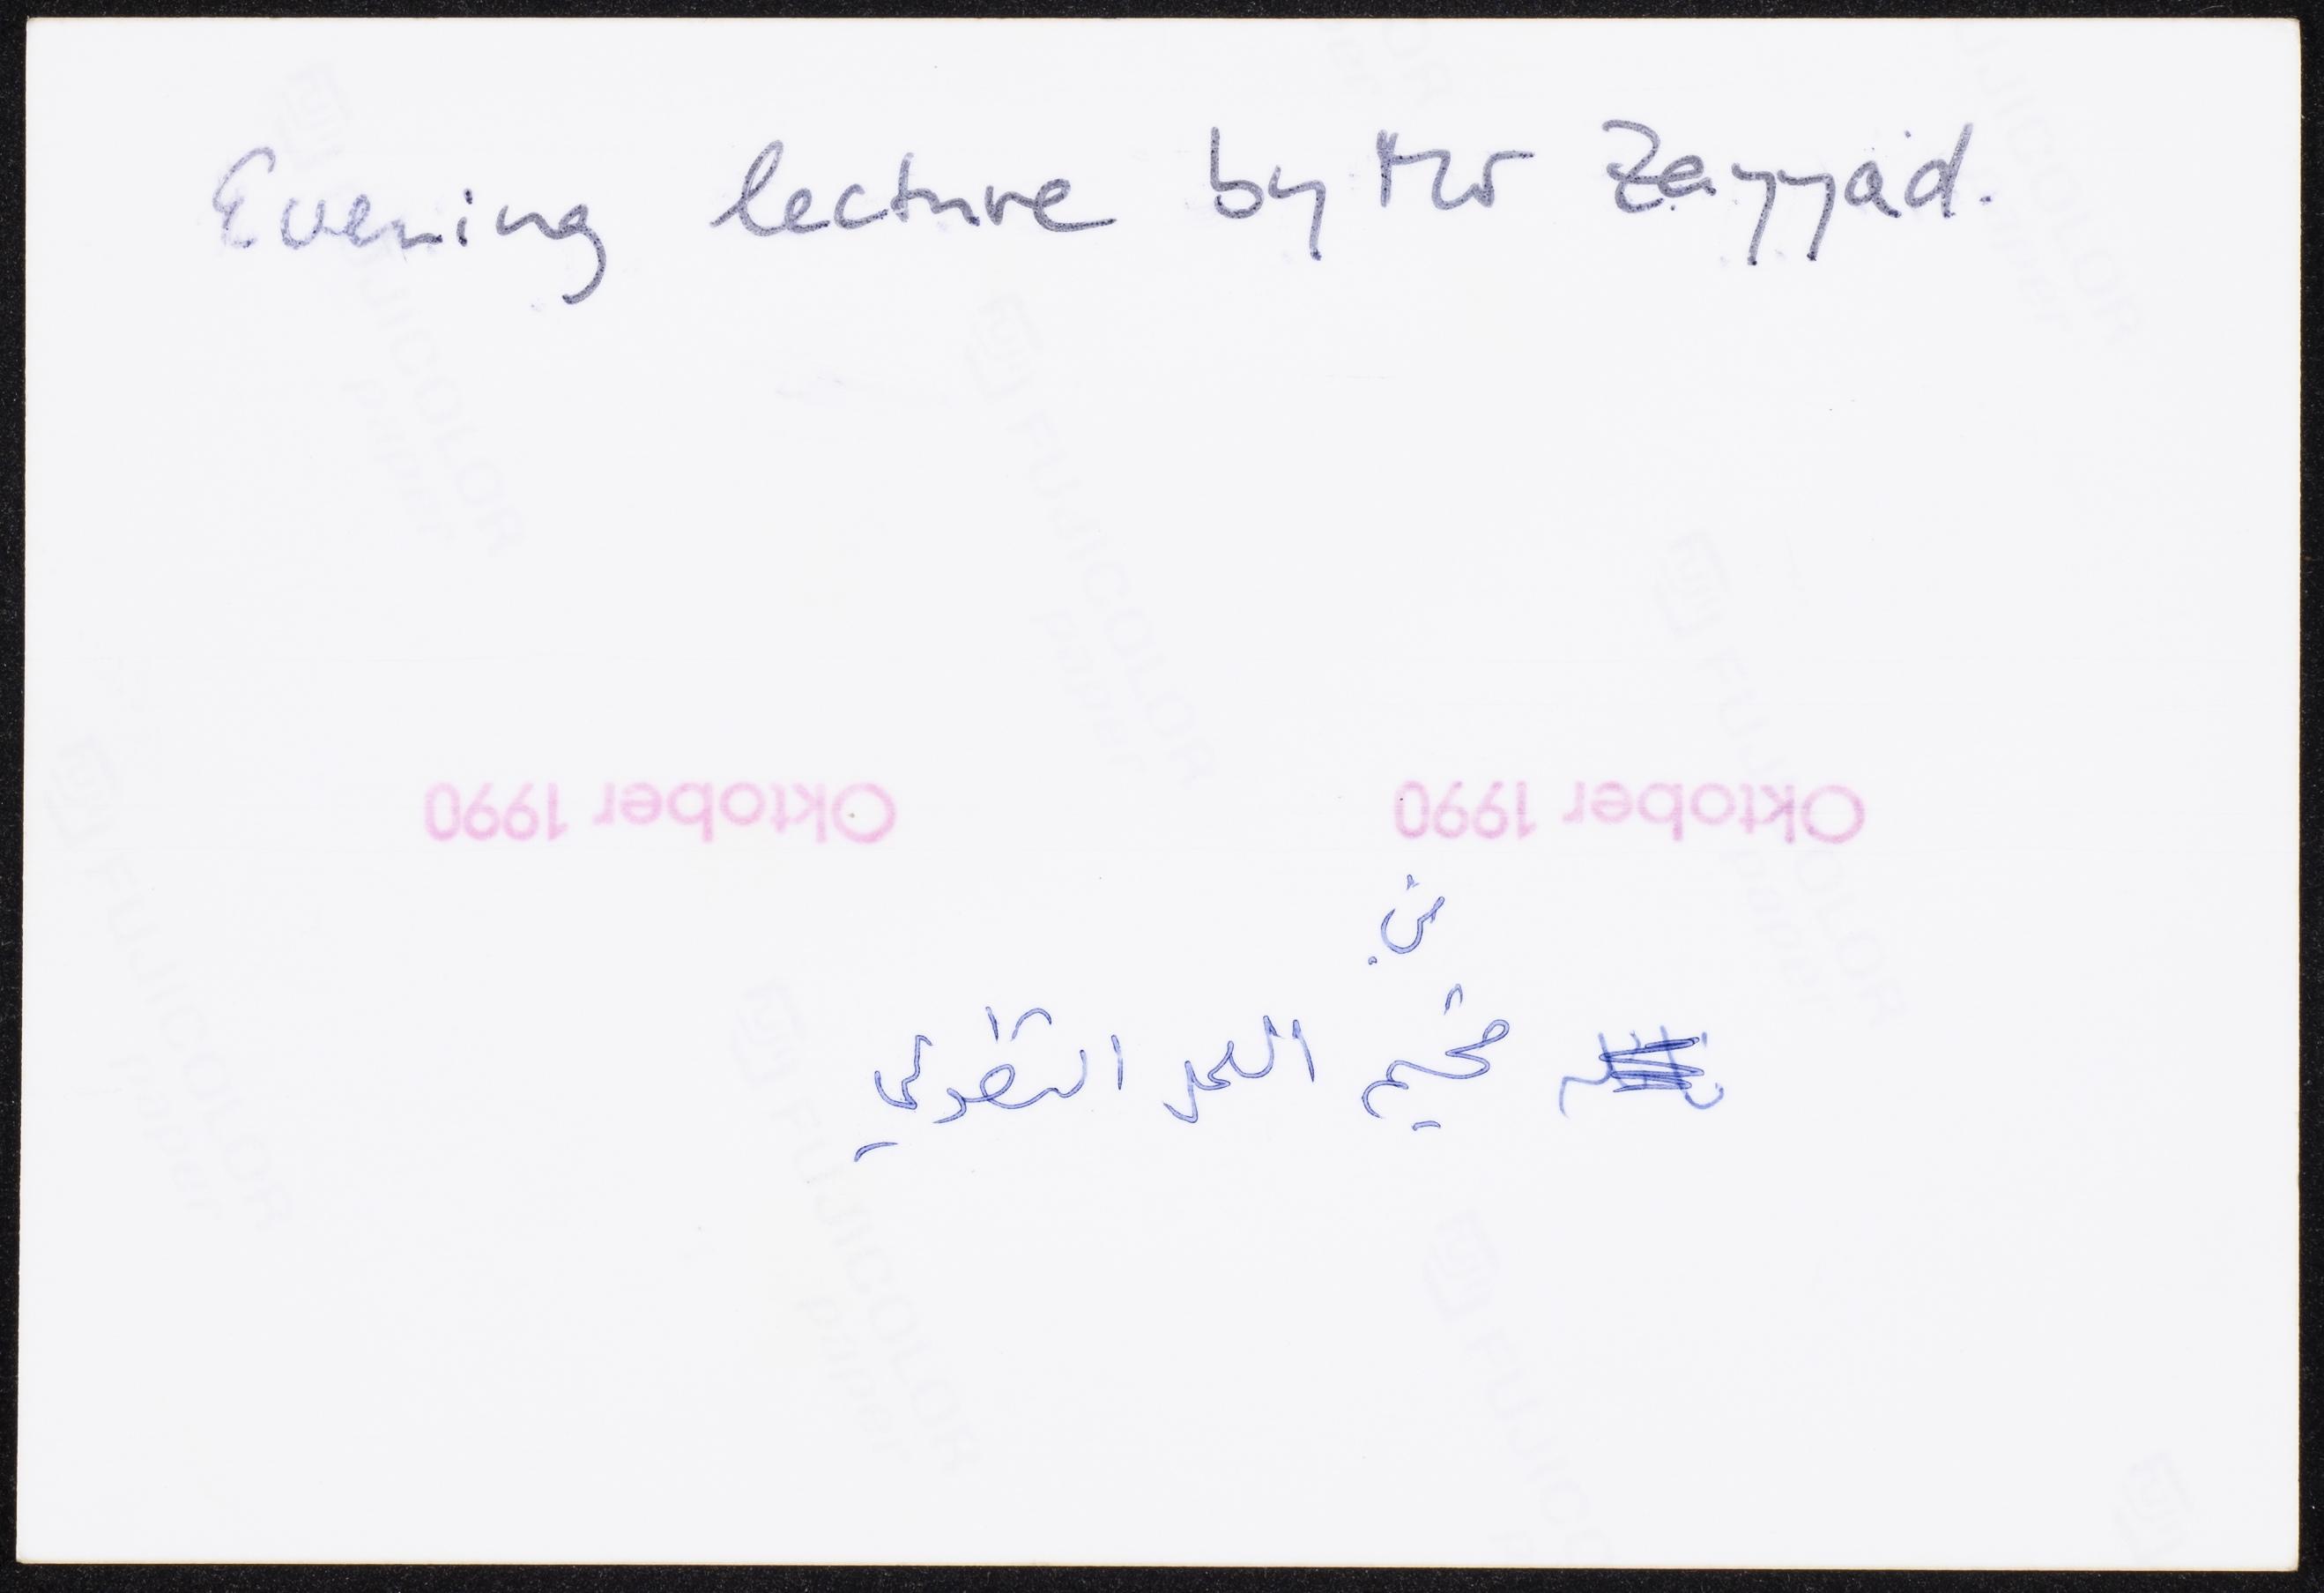 Evening lecture by Mr Zayyad.
Oktober 1990 Oktober 1990
في
مخيم العمل التطوعي
FUJICOLOR
paper